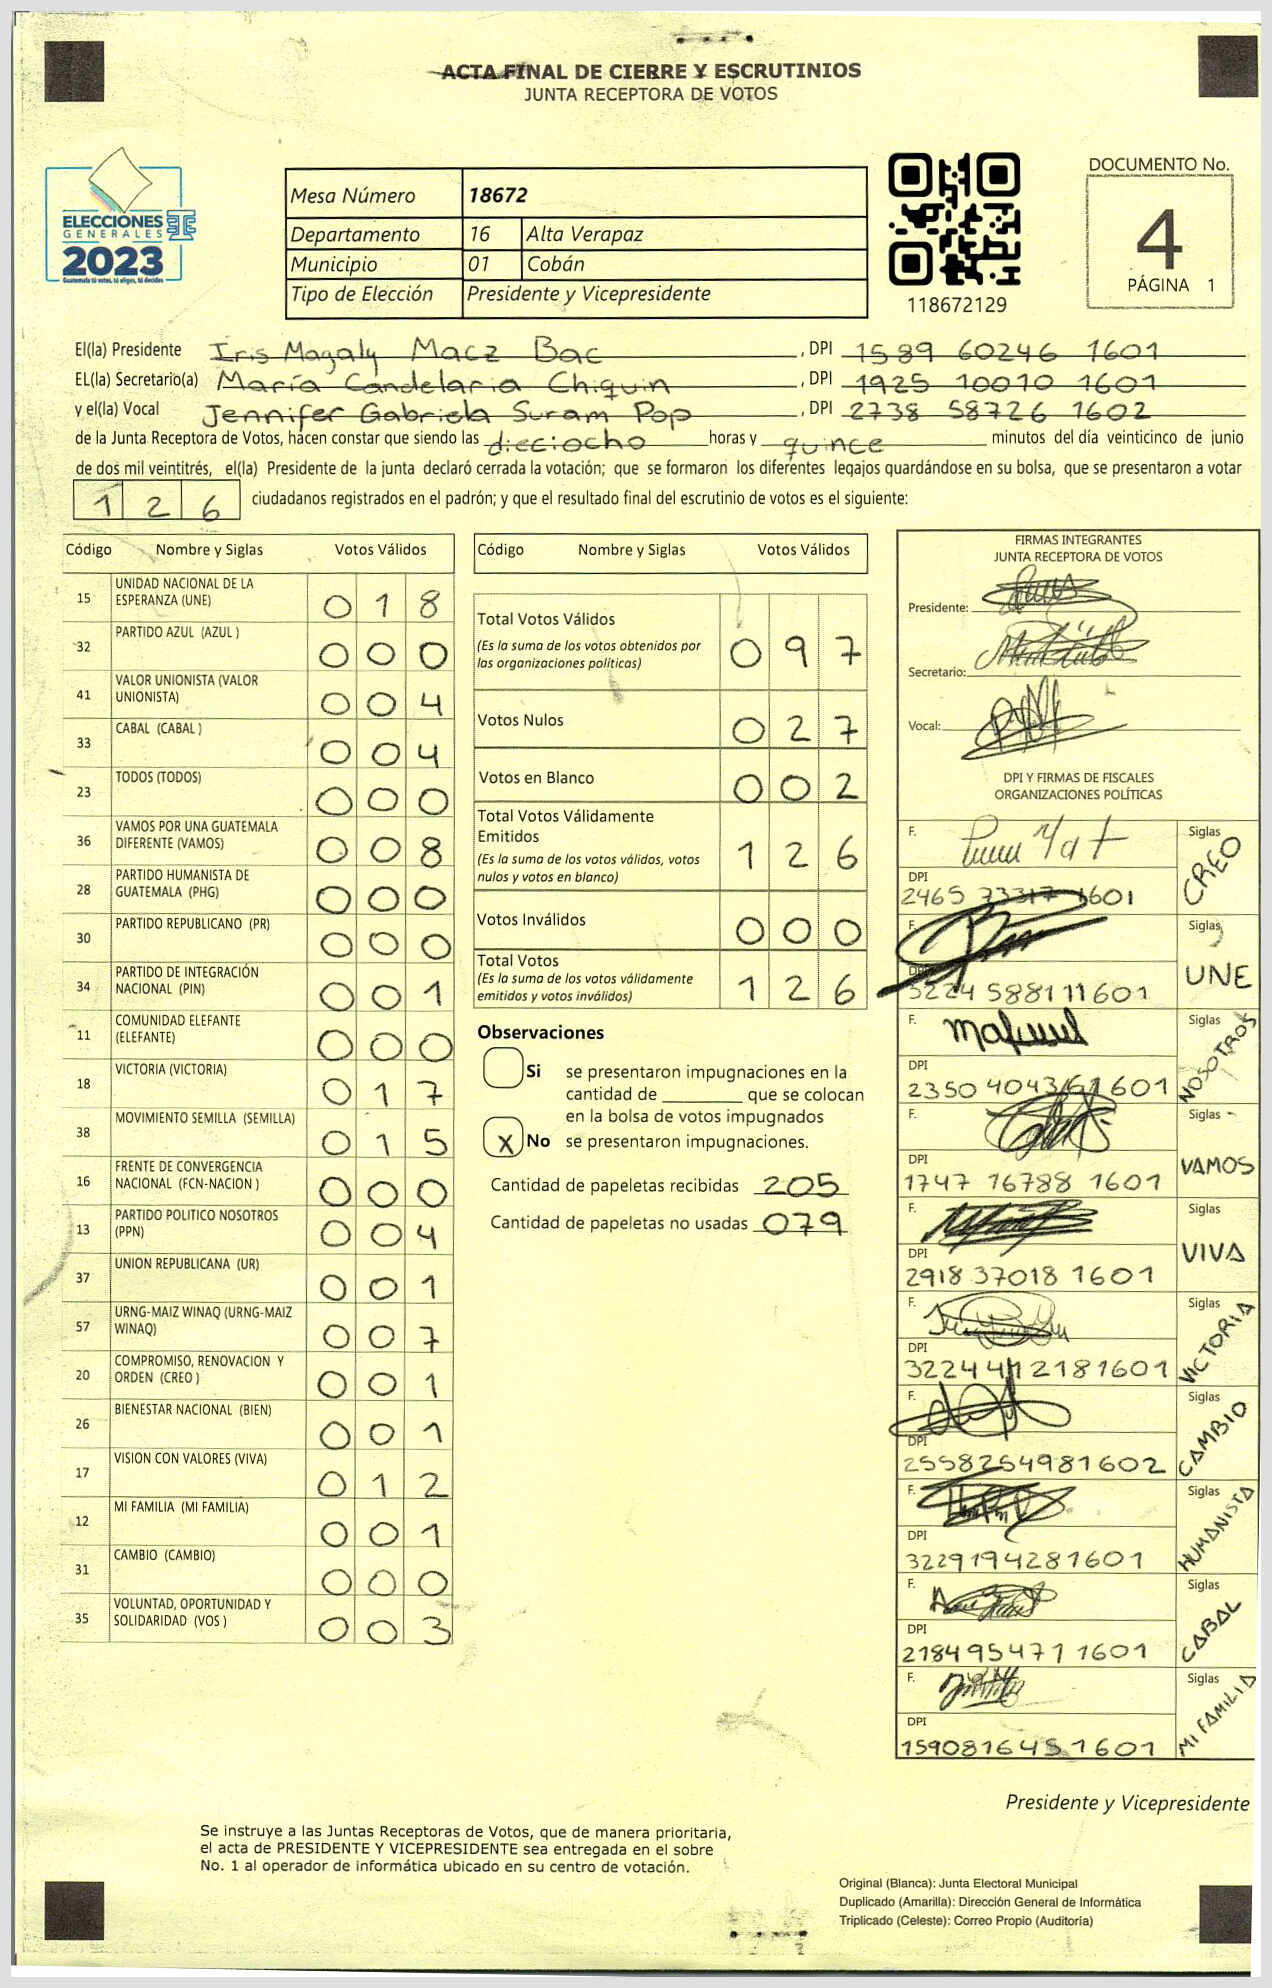 ACTA FINAL DE CIERRE Y ESCRUTINIOS
JUNTA RECEPTORA DE VOTOS
ELECCIONES
GENERALES
2023
Guatemala tú votas, tú eliges, tú decides
Mesa Número 18672
Departamento 16 Alta Verapaz
Municipio 01 Cobán
Tipo de Elección Presidente y Vicepresidente
118672129
DOCUMENTO No.
4
PÁGINA 1
El(la) Presidente Iris Magaly Macz Bac, DPI 1589 60246 1601
EL(la) Secretario(a) María Candelaria Chiquin, DPI 1925 10070 1601
y el(la) Vocal Jennifer Gabriela Suram Pop, DPI 2738 58726 1602
de la Junta Receptora de Votos, hacen constar que siendo las dieciocho horas y quince minutos del día veinticinco de junio
de dos mil veintitrés, el(la) Presidente de la junta declaró cerrada la votación; que se formaron los diferentes legajos quardándose en su bolsa, que se presentaron a votar
126 ciudadanos registrados en el padrón; y que el resultado final del escrutinio de votos es el siguiente:
Código Nombre y Siglas Votos Válidos
15 UNIDAD NACIONAL DE LA ESPERANZA (UNE) 018
32 PARTIDO AZUL (AZUL ) 000
41 VALOR UNIONISTA (VALOR UNIONISTA) 004
33 CABAL (CABAL ) 004
23 TODOS (TODOS) 000
36 VAMOS POR UNA GUATEMALA DIFERENTE (VAMOS) 008
28 PARTIDO HUMANISTA DE GUATEMALA (PHG) 000
30 PARTIDO REPUBLICANO (PR) 000
34 PARTIDO DE INTEGRACIÓN NACIONAL (PIN) 001
11 COMUNIDAD ELEFANTE (ELEFANTE) 000
18 VICTORIA (VICTORIA) 017
38 MOVIMIENTO SEMILLA (SEMILLA) 015
16 FRENTE DE CONVERGENCIA NACIONAL (FCN-NACION ) 000
13 PARTIDO POLITICO NOSOTROS (PPN) 004
37 UNION REPUBLICANA (UR) 001
57 URNG-MAIZ WINAQ (URNG-MAIZ WINAQ) 007
20 COMPROMISO, RENOVACION Y ORDEN (CREO ) 001
26 BIENESTAR NACIONAL (BIEN) 001
17 VISION CON VALORES (VIVA) 012
12 MI FAMILIA (MI FAMILIA) 001
31 CAMBIO (CAMBIO) 000
35 VOLUNTAD, OPORTUNIDAD Y SOLIDARIDAD (VOS ) 003
Código Nombre y Siglas Votos Válidos
Total Votos Válidos 097
(Es la suma de los votos obtenidos por
las organizaciones políticas)
Votos Nulos 027
Votos en Blanco 002
Total Votos Válidamente
Emitidos 126
(Es la suma de los votos válidos, votos
nulos y votos en blanco)
Votos Inválidos 000
Total Votos 126
(Es la suma de los votos válidamente
emitidos y votos inválidos)
Observaciones
Si se presentaron impugnaciones en la
cantidad de ________ que se colocan
en la bolsa de votos impugnados
X No se presentaron impugnaciones.
Cantidad de papeletas recibidas 205
Cantidad de papeletas no usadas 079
FIRMAS INTEGRANTES
JUNTA RECEPTORA DE VOTOS
Presidente:
Secretario:
Vocal:
DPI Y FIRMAS DE FISCALES
ORGANIZACIONES POLÍTICAS
F. Siglas CREO
DPI
2465 73317 1601
F. Siglas UNE
DPI
3224 58811 1601
F. Siglas NOSOTROS
DPI
2350 40436 1601
F. Siglas VAMOS
DPI
1747 16788 1601
F. Siglas VIVA
DPI
2918 37018 1601
F. Siglas VICTORIA
DPI
3224412181601
F. Siglas CAMBIO
DPI
2558254981602
F. Siglas HUMANISTA
DPI
3229194281601
F. Siglas CABAL
DPI
2184954711601
F. Siglas MI FAMILIA
DPI
1590816451601
Presidente y Vicepresidente
Se instruye a las Juntas Receptoras de Votos, que de manera prioritaria,
el acta de PRESIDENTE Y VICEPRESIDENTE sea entregada en el sobre
No. 1 al operador de informática ubicado en su centro de votación.
Original (Blanca): Junta Electoral Municipal
Duplicado (Amarilla): Dirección General de Informática
Triplicado (Celeste): Correo Propio (Auditoría)